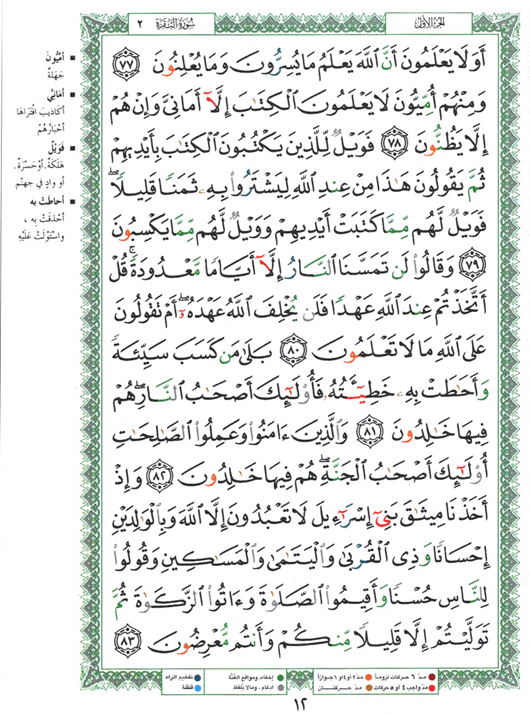 الجزء الأول
سورة البقرة ٢
أَوَلَا يَعْلَمُونَ أَنَّ ٱللَّهَ يَعْلَمُ مَا يُسِرُّونَ وَمَا يُعْلِنُونَ ٧٧
وَمِنْهُمْ أُمِّيُّونَ لَا يَعْلَمُونَ ٱلْكِتَٰبَ إِلَّآ أَمَانِىَّ وَإِنْ هُمْ
إِلَّا يَظُنُّونَ ٧٨ فَوَيْلٌ لِّلَّذِينَ يَكْتُبُونَ ٱلْكِتَٰبَ بِأَيْدِيهِمْ
ثُمَّ يَقُولُونَ هَٰذَا مِنْ عِندِ ٱللَّهِ لِيَشْتَرُوا۟ بِهِۦ ثَمَنًا قَلِيلًا ۖ
فَوَيْلٌ لَّهُم مِّمَّا كَتَبَتْ أَيْدِيهِمْ وَوَيْلٌ لَّهُم مِّمَّا يَكْسِبُونَ
٧٩ وَقَالُوا۟ لَن تَمَسَّنَا ٱلنَّارُ إِلَّآ أَيَّامًا مَّعْدُودَةً ۚ قُلْ
أَتَّخَذْتُمْ عِندَ ٱللَّهِ عَهْدًا فَلَن يُخْلِفَ ٱللَّهُ عَهْدَهُۥٓ ۖ أَمْ تَقُولُونَ
عَلَى ٱللَّهِ مَا لَا تَعْلَمُونَ ٨٠ بَلَىٰ مَن كَسَبَ سَيِّئَةً
وَأَحَٰطَتْ بِهِۦ خَطِيٓـَٔتُهُۥ فَأُو۟لَٰٓئِكَ أَصْحَٰبُ ٱلنَّارِ ۖ هُمْ
فِيهَا خَٰلِدُونَ ٨١ وَٱلَّذِينَ ءَامَنُوا۟ وَعَمِلُوا۟ ٱلصَّٰلِحَٰتِ
أُو۟لَٰٓئِكَ أَصْحَٰبُ ٱلْجَنَّةِ ۖ هُمْ فِيهَا خَٰلِدُونَ ٨٢ وَإِذْ
أَخَذْنَا مِيثَٰقَ بَنِىٓ إِسْرَٰٓءِيلَ لَا تَعْبُدُونَ إِلَّا ٱللَّهَ وَبِٱلْوَٰلِدَيْنِ
إِحْسَانًا وَذِى ٱلْقُرْبَىٰ وَٱلْيَتَٰمَىٰ وَٱلْمَسَٰكِينِ وَقُولُوا۟
لِلنَّاسِ حُسْنًا وَأَقِيمُوا۟ ٱلصَّلَوٰةَ وَءَاتُوا۟ ٱلزَّكَوٰةَ ثُمَّ
تَوَلَّيْتُمْ إِلَّا قَلِيلًا مِّنكُمْ وَأَنتُم مُّعْرِضُونَ ٨٣
■ أُمِّيُّونَ
جَهَلَةٌ
■ أَمَانِيَّ
أكاذيبَ افْتَرَاهَا
أَحْبَارُهُمْ
■ فَوَيْلٌ
هَلَكَةٌ. أوْ حَسْرَةٌ.
أو وادٍ في جهنّم
■ أحاطَتْ به
أَحْدَقَتْ بِهِ ،
واسْتَوْلَتْ عَلَيْهِ
مدّ ٦ حركات لزوماً مدّ ٢ أو ٤ أو ٦ جوازاً إخفاء، ومواقع الغُنَّة تفخيم الراء
مدّ واجب ٤ أو ٥ حركات مدّ حركتان إدغام ، وما لا يُلفَظ قلقلة
١٢